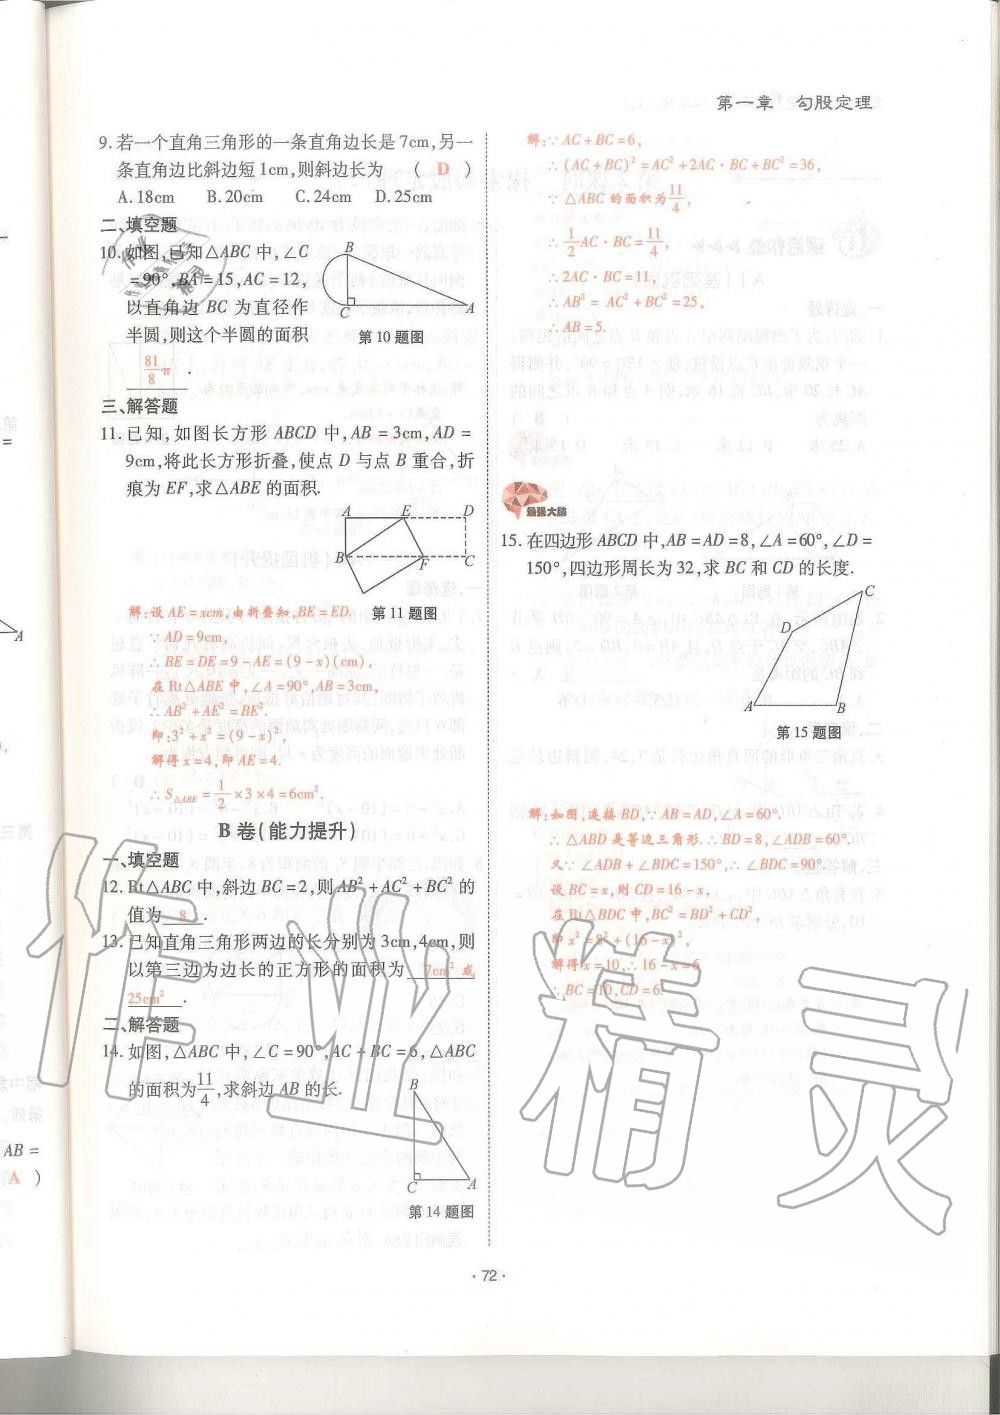 第一章 勾股定理
9. 若一个直角三角形的一条直角边长是7cm,另一
条直角边比斜边短1cm,则斜边长为 ( D )
A.18cm B.20cm C.24cm D.25cm
二、填空题
10. 如图,已知△ABC中,∠C
=90°,BA=15,AC=12,
以直角边BC为直径作
半圆,则这个半圆的面积
81/8 π .
B
C
A
第10题图
三、解答题
11. 已知,如图长方形ABCD中,AB=3cm,AD=
9cm,将此长方形折叠,使点D与点B重合,折
痕为EF,求△ABE的面积.
A E D
B F C
第11题图
解:设AE=xcm,由折叠知,BE=ED.
∵AD=9cm,
∴BE=DE=9-AE=(9-x)(cm),
在Rt△ABE中,∠A=90°,AB=3cm,
∴AB²+AE²=BE².
即:3²+x²=(9-x)²,
解得x=4,即AE=4.
∴S△ABE=1/2×3×4=6cm².
B卷(能力提升)
一、填空题
12. Rt△ABC中,斜边BC=2,则AB²+AC²+BC²的
值为 8 .
13. 已知直角三角形两边的长分别为3cm,4cm,则
以第三边为边长的正方形的面积为 7cm²或
25cm² .
二、解答题
14. 如图,△ABC中,∠C=90°,AC+BC=6,△ABC
的面积为11/4,求斜边AB的长.
B
C A
第14题图
解:∵AC+BC=6,
∴(AC+BC)²=AC²+2AC·BC+BC²=36,
∵△ABC的面积为11/4,
∴1/2AC·BC=11/4,
∴2AC·BC=11.
∴AB²=AC²+BC²=25,
∴AB=5.
最强大脑
15. 在四边形ABCD中,AB=AD=8,∠A=60°,∠D=
150°,四边形周长为32,求BC和CD的长度.
C
D
A B
第15题图
解:如图,连接BD,∵AB=AD,∠A=60°.
∴△ABD是等边三角形.∴BD=8,∠ADB=60°.
又∵∠ADB+∠BDC=150°,∴∠BDC=90°.
设BC=x,则CD=16-x,
在Rt△BDC中,BC²=BD²+CD²,
即x²=8²+(16-x)²,
解得x=10,∴16-x=6
∴BC=10,CD=6.
AB=
A )
·72·
作业精灵